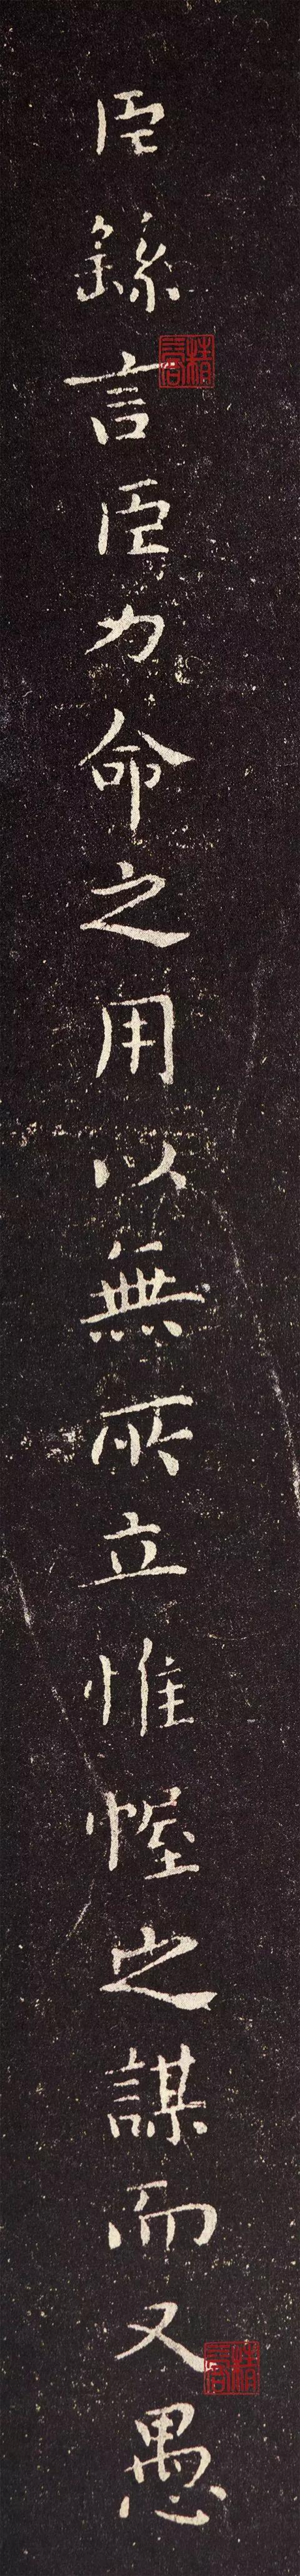 臣繇言臣力命之用以無所立惟幄之謀而又愚